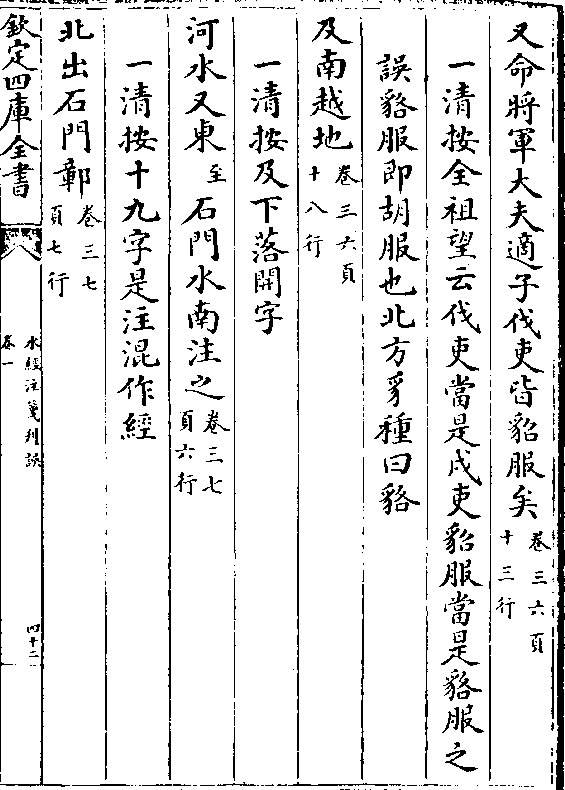 又命將軍大夫適子伐吏皆貂服矣卷三六頁十三行
一清按全祖望云伐吏當是戍吏貂服當是貉服之
誤貉服即胡服也北方豸種曰貉
及南越地卷三六頁十八行
一清按及下落開字
河水又東至石門水南注之卷三七頁六行
一清按十九字是注混作經
北出石門鄣卷三七頁七行
欽定四庫全書
水經注箋刊誤
卷一
四十二